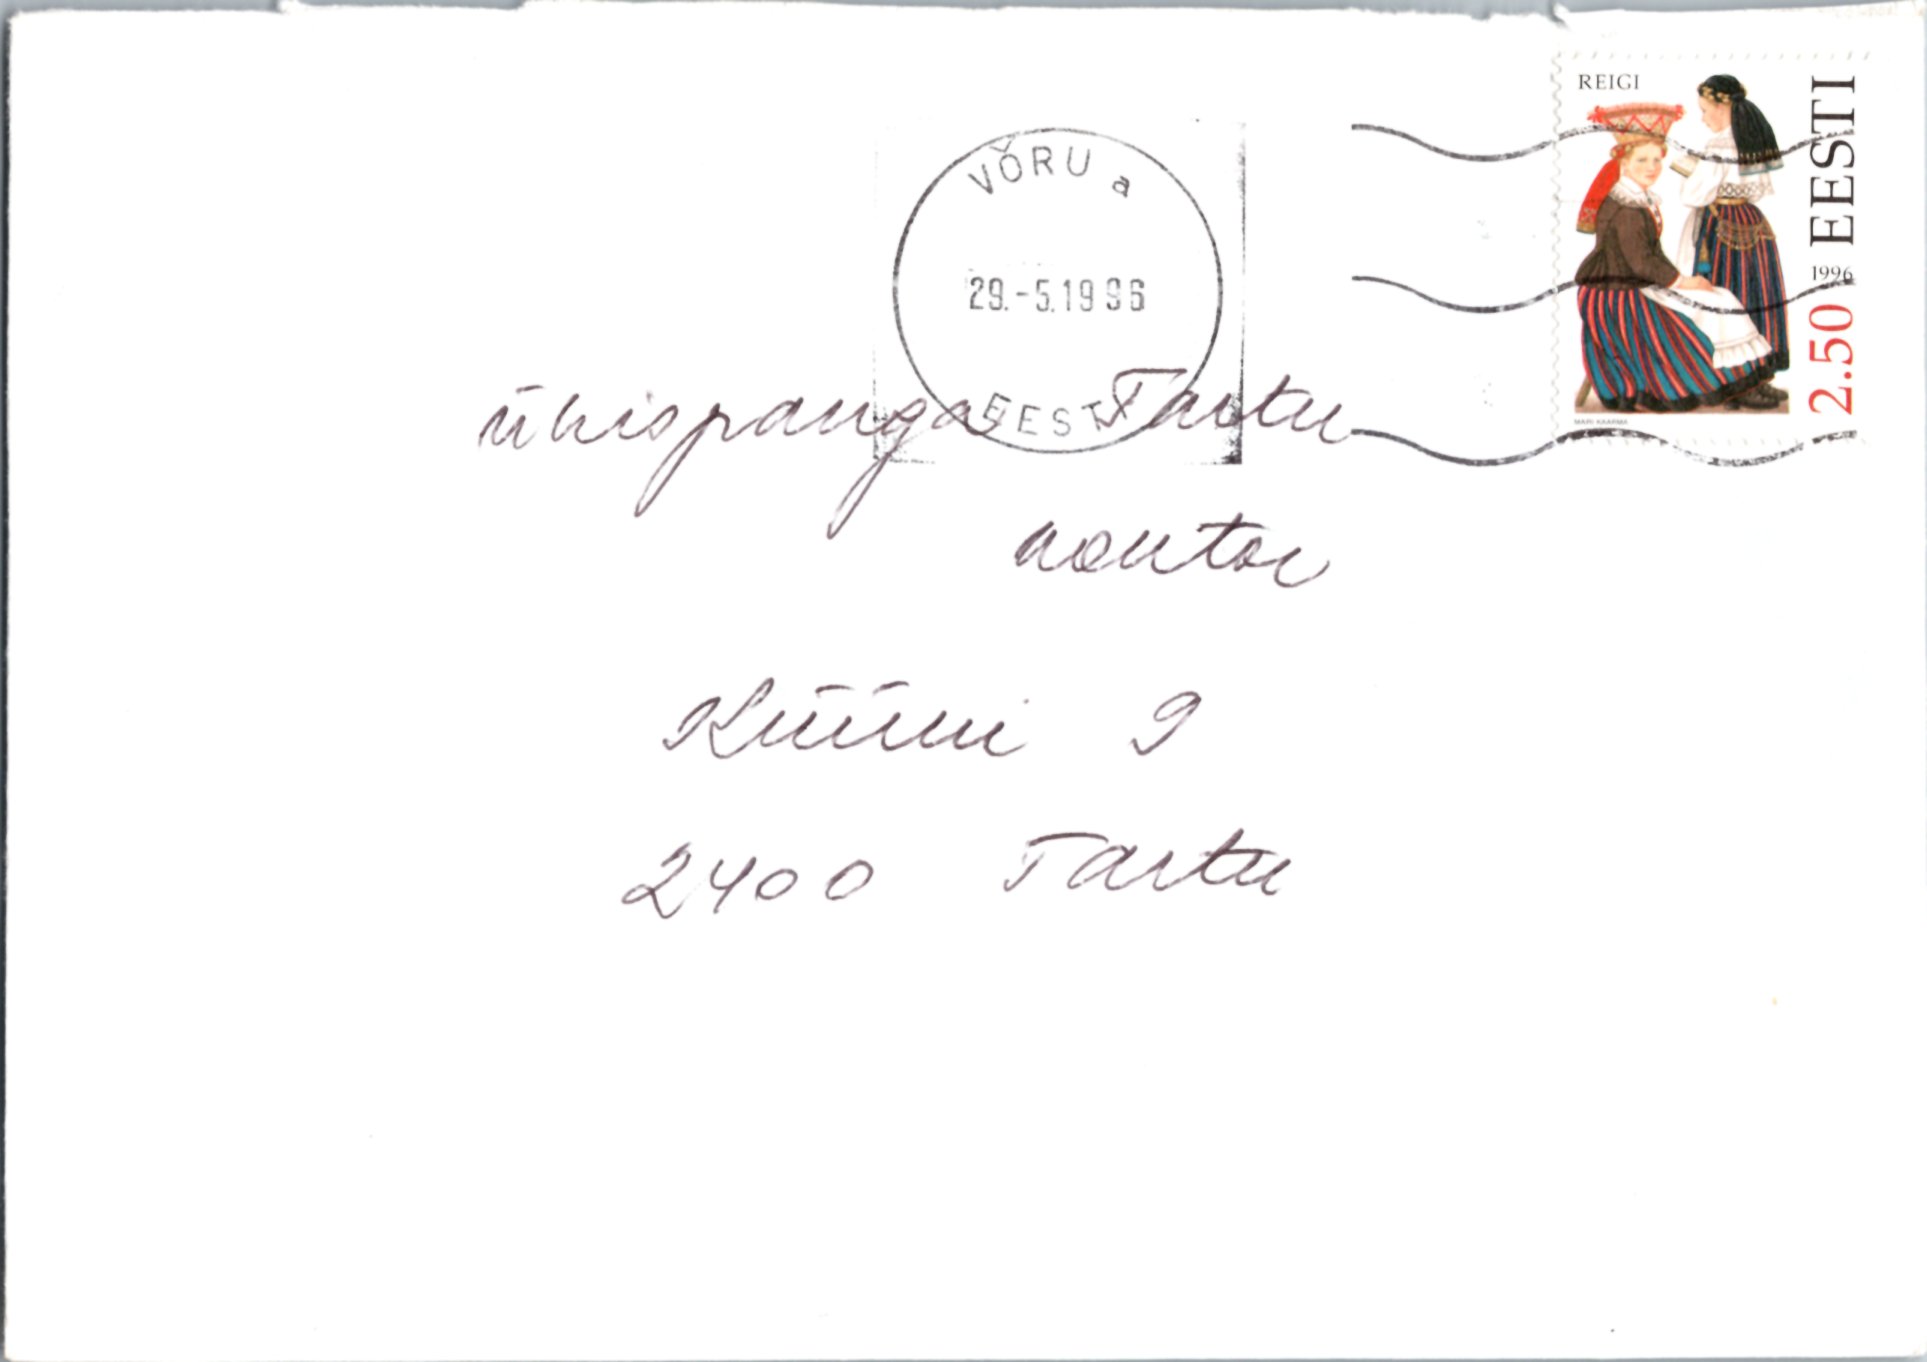 REIGI
EESTI
1996
2.50
MARI KAARMA
VÕRU a
29.-5.1996
EESTI
ühispanga Tartu
kontor
Küüni 9
2400 Tartu